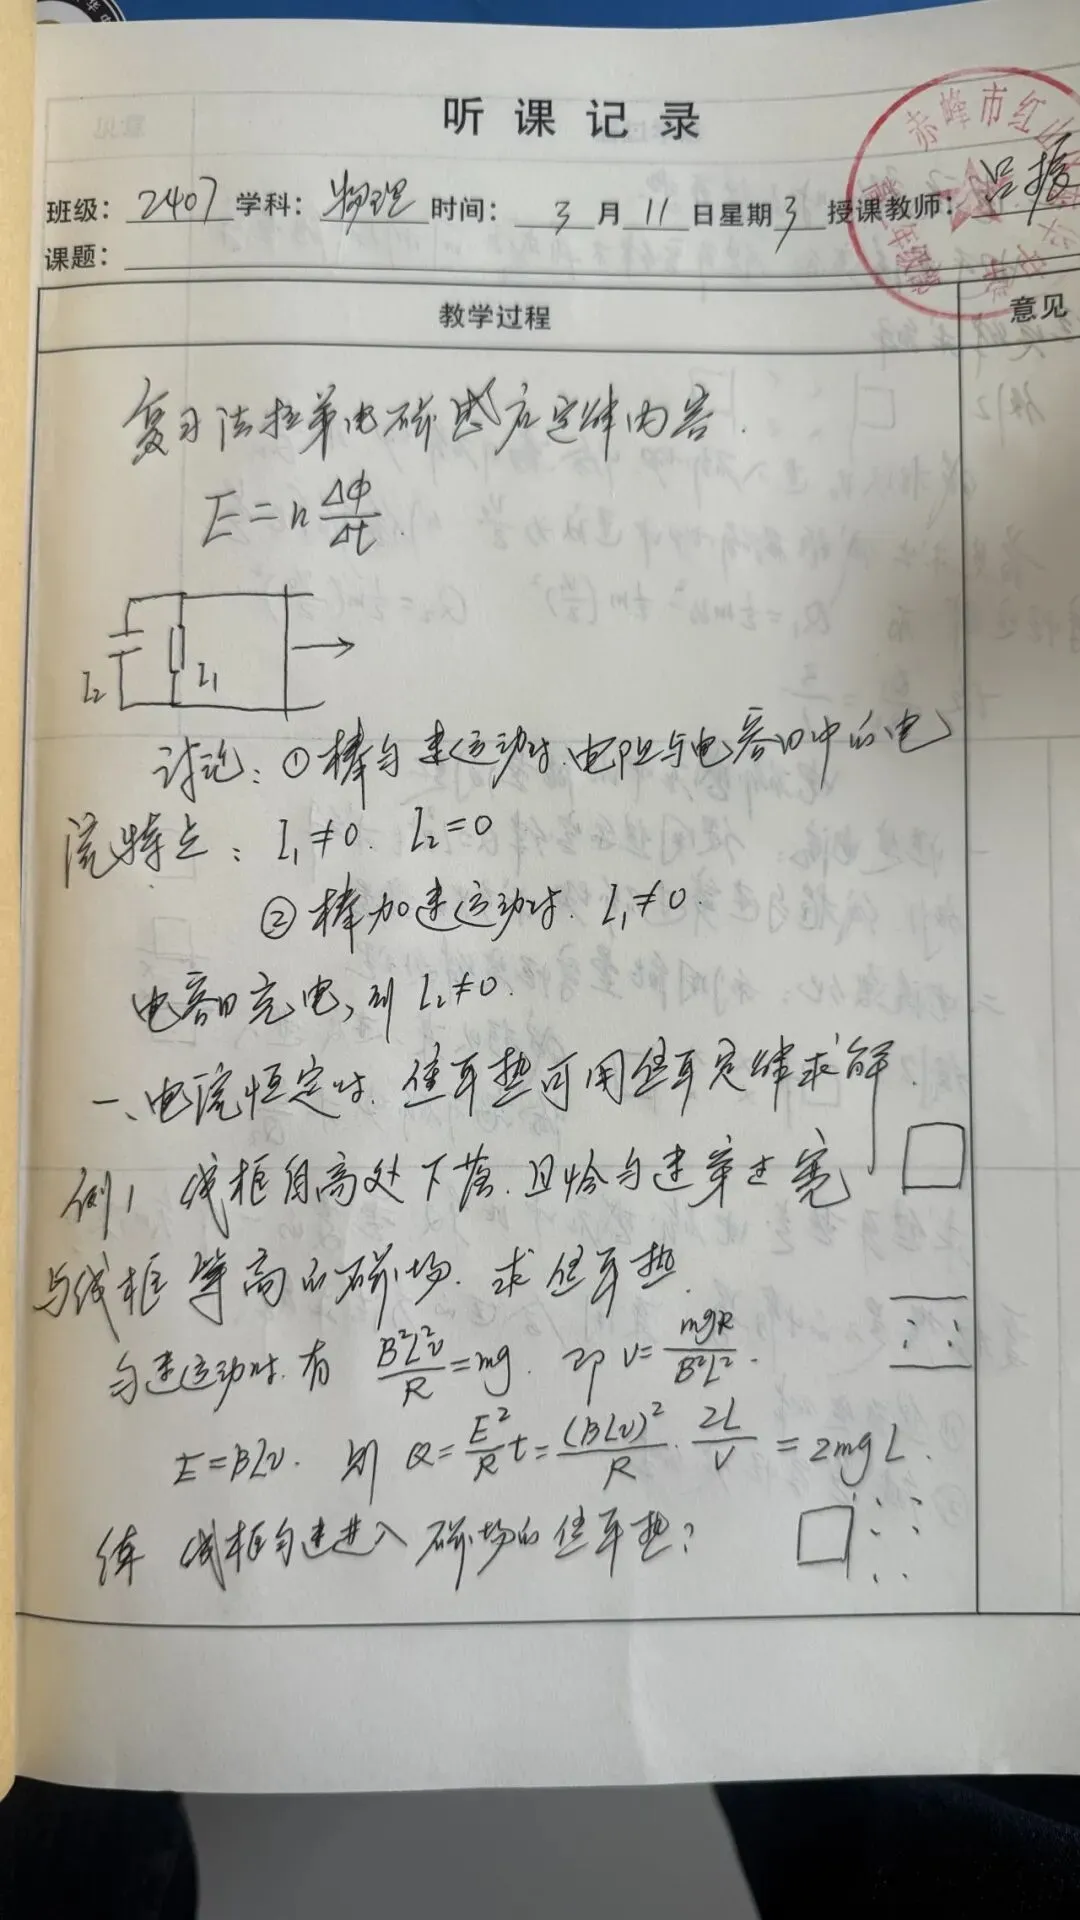 听课记录
班级：2407 学科：物理 时间：3月11日星期3 授课教师：吕振
课题：
教学过程 意见
复习法拉第电磁感应定律内容.
E=nΔΦ/Δt.
I₂ I₁
讨论：①棒匀速运动时.电阻与电容器中的电
流特点：I₁≠0. I₂=0
②棒加速运动时. I₁≠0.
电容器充电,则 I₂≠0.
一、电流恒定时.焦耳热可用焦耳定律求解.
例1 线框自高处下落.且恰匀速穿过宽
与线框等高的磁场.求焦耳热.
匀速运动时.有 B²L²v/R=mg. 即 v=mgR/B²L².
E=BLv. 则 Q=E²/R t=(BLv)²/R·2L/v=2mgL.
练 线框匀速进入磁场的焦耳热?